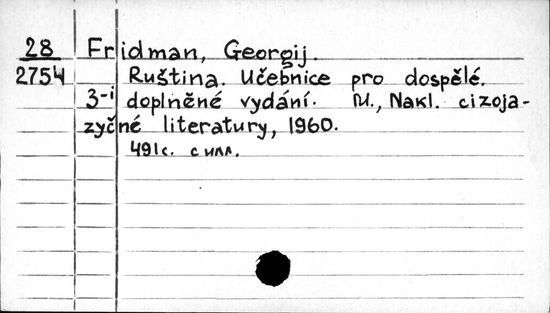 28 Fridman, Georgij.
2754 Ruština. Učebnice pro dospělé.
3-i doplněné vydání. M., Nakl. cizoja-
zyčné literatury, 1960.
491с. с илл.